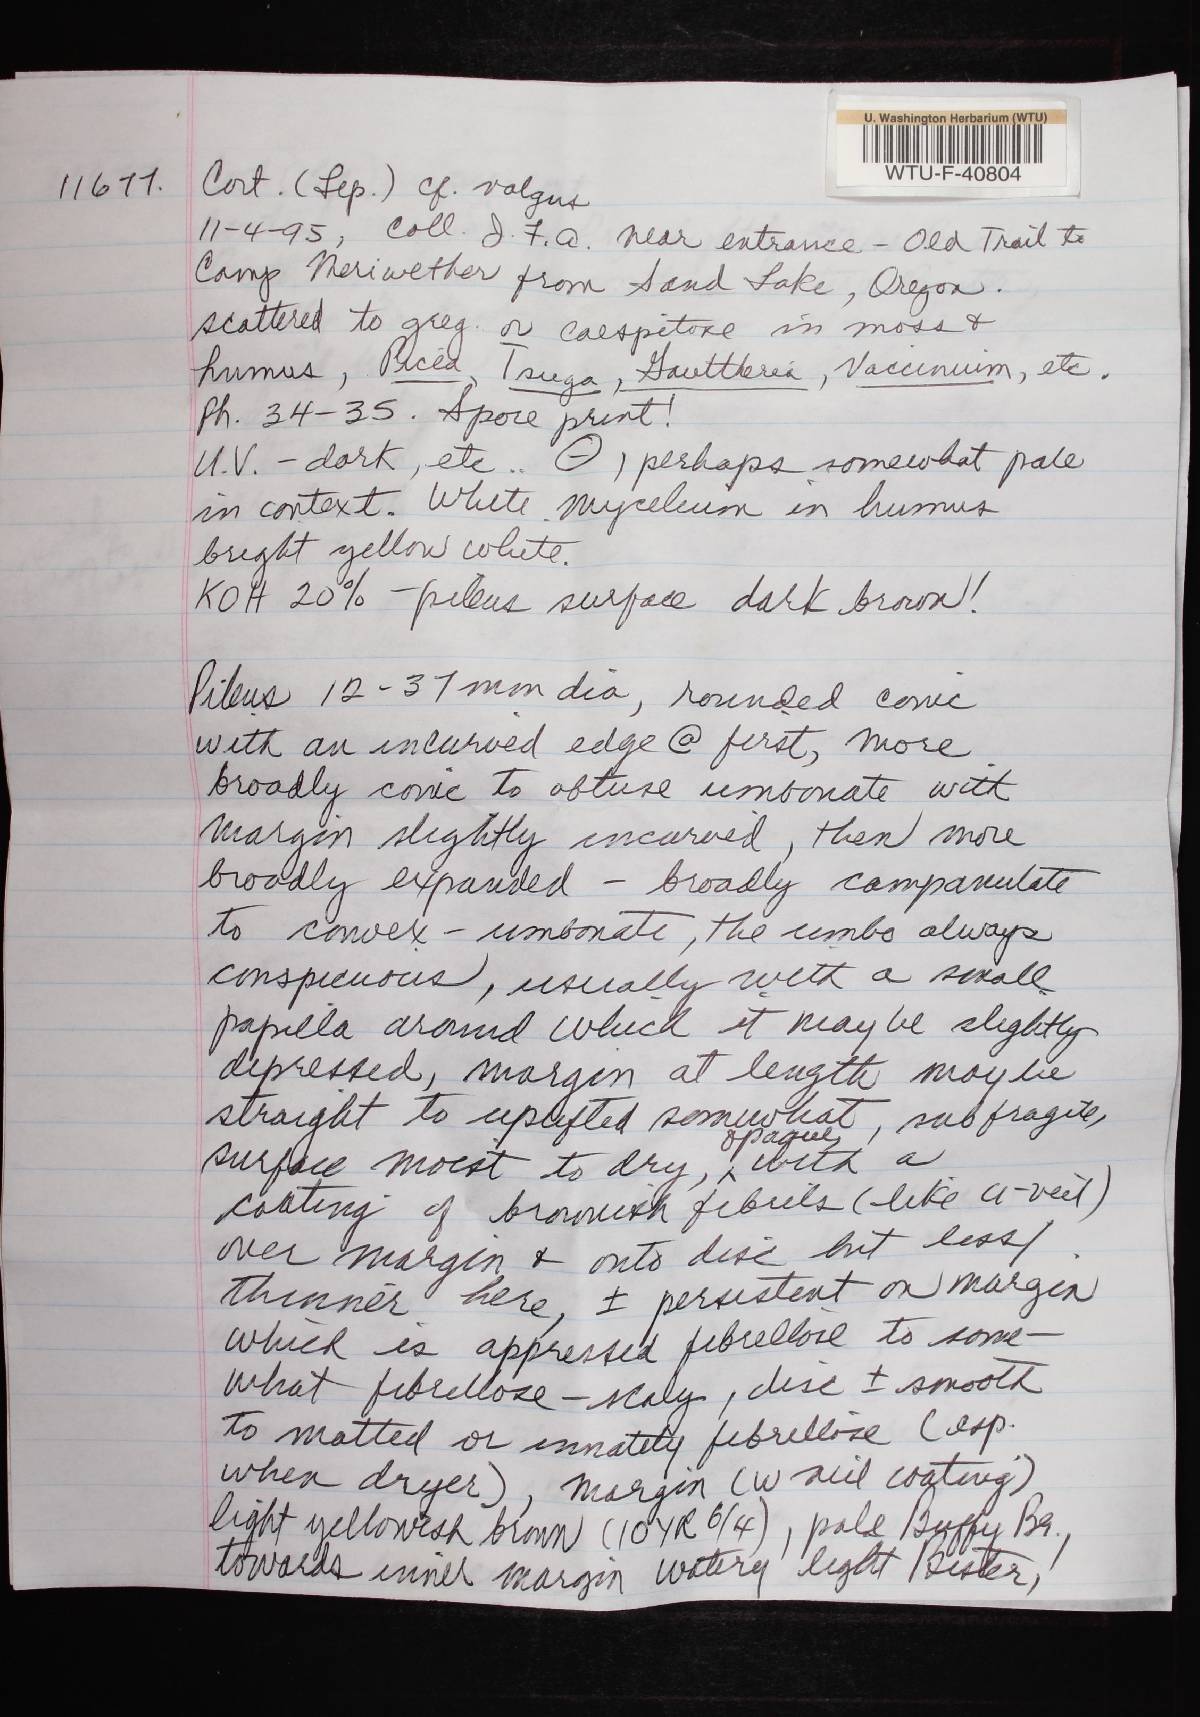 U. Washington Herbarium (WTU)
WTU-F-40804
11677. Cort. (Lep.) cf. valgus
11-4-95, Coll. J.F.A. near entrance - Old Trail to
Camp Meriwether from Sand Lake, Oregon.
scattered to greg. or caespitose in moss &
humus, Picea, Tsuga, Gaultheria, Vaccinium, etc.
Ph. 34-35. Spore print!
U.V. - dark, etc.. ⊖, perhaps somewhat pale
in context. White mycelium in humus
bright yellow white.
KOH 20% - pileus surface dark brown!
Pileus 12-37 mm dia, rounded conic
with an incurved edge @ first, more
broadly conic to obtuse umbonate with
margin slightly incurved, then more
broadly expanded - broadly campanulate
to convex-umbonate, the umbo always
conspicuous, usually with a small
papilla around which it may be slightly
depressed, margin at length may be
straight to uplifted somewhat, subfragile,
surface moist to dry, opaque, with a
coating of brownish fibrils (like a veil)
over margin & onto disc but less/
thinner here, ± persistent on margin
which is appressed fibrillose to some-
what fibrillose-scaly, disc ± smooth
to matted or innately fibrillose (esp.
when dryer), margin (w veil coating)
light yellowish brown (10YR 6/4), pale Buffy Br.,
towards inner margin watery light Bister,